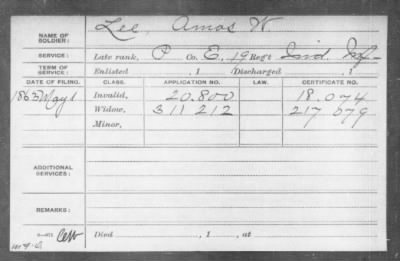 NAME OF SOLDIER: Lee, Amos W.
SERVICE: Late rank, P Co. E, 19 Reg't Ind. Inf.
TERM OF SERVICE: Enlisted , 1 Discharged , 1
DATE OF FILING. CLASS. APPLICATION NO. LAW. CERTIFICATE NO.
1863 May 1 Invalid, 20.800 18.074
Widow, 311 212 217 079
Minor,
ADDITIONAL SERVICES:
REMARKS:
Died , 1 , at